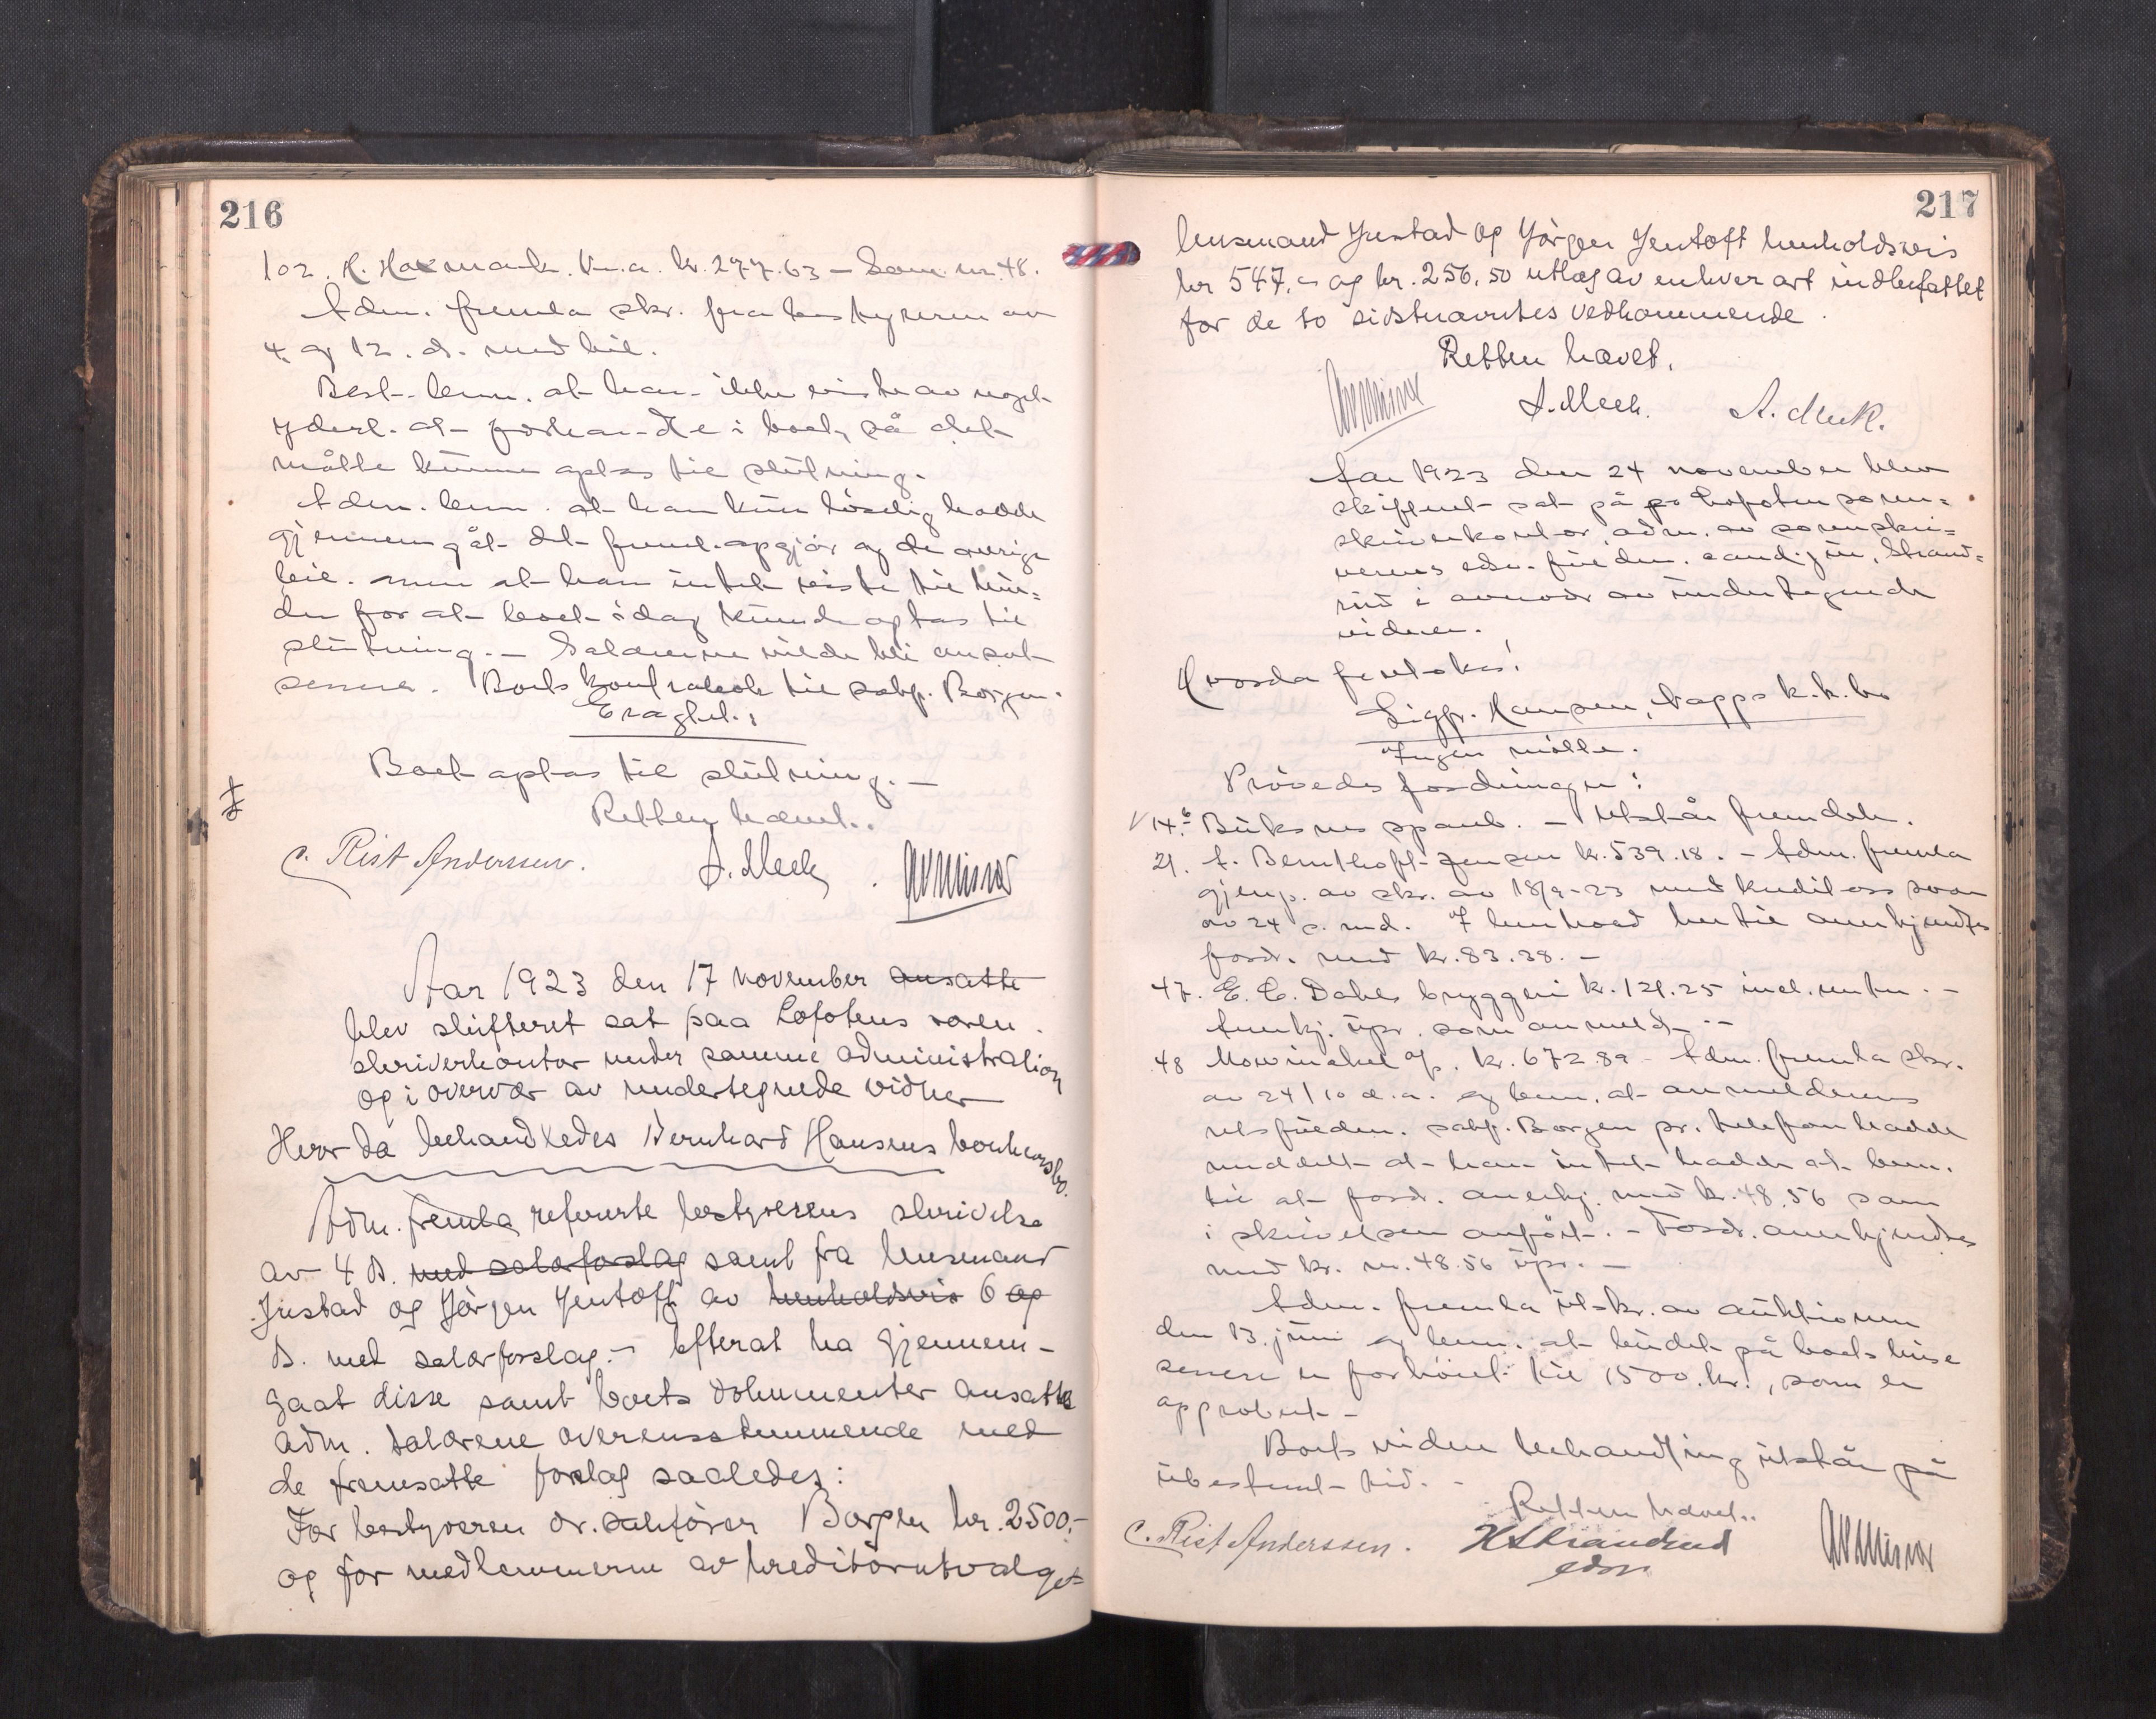 216
102. H. Hoxmark. V.u.a. kr. 277.63 – Som nr. 48.
Adm. fremla skr. fra bestyreren av
4. og 12. ds. med bil.
Best. bem. at han ikke visste av noget
yderl. at forhandle i boet, så det
måtte kunne optas til slutning.
Adm. bem. at han kun løselig hadde
gjennemgåt det freml. opgjør og de øvrige
bil. men at han intet visste til hin-
der for at boet idag kunde optas til
slutning. – Salærerne vilde bli ansat
senere. Boets til sakf. Borgen.
Eragtet:
Boet optas til slutning. –
Retten hævet.
C. Rist Anderssen. A. Meek
Aar 1923 den 17 november ansatte
blev skifteret sat paa Lofotens soren-
skriverkontor under samme administration
og i overvær av undertegnede vidner
Hvor da behandledes Bernhard Hansens konkursbo.
Adm. fremla refererte bestyrerens skrivelse
av 4 ds. med salærforslag samt fra lensmand
Justad og Jørgen Jentoft av henholdsvis 6 og
ds. med salærforslag. – Efterat ha gjennem-
gaat disse samt boets dokumenter ansatte
adm. salærene overensstemmende med
de fremsatte forslag saaledes:
For bestyreren or. sakfører Borgen kr. 2500.-
og for medlemmerne av kreditorutvalget
217
lensmand Justad og Jørgen Jentoft henholdsvis
kr 547,- og kr. 256,50 utlæg av enhver art indbefattet
for de to sidstnævntes vedkommende.
Retten hævet.
A. Meek. A. Meek.
Aar 1923 den 24 november blev
skifteret sat på på Lofoten soren-
skriverkontor, adm. av sorenskri-
verens edsv. fuldm. cand. jur. Strand-
rud i overvær av undertegnede
vidner.
Hvorda foretokes:
Sigfr. Hansen, Napps k.k.bo
Ingen møtte.
Prøvedes fordringer:
14.b Buksnes spareb. – Utstår fremdeles.
21. A. Bernthoft-Jensen kr. 539.18. – Adm. fremla
gjenp. av skr. av 18/9-23 med svar
av 24 s. md. I henhold hertil anerkjendtes
fordr. med kr. 83.38. –
47. E. C. Dahls bryggeri kr. 121.25 incl. renter. –
Anerkj. upr. som anmeldt. –
48 Mowinckel kr. 672.89 – Adm. fremla skr.
av 24/10 d.a. og bem. at anmelderens
retsfuldm. sakf. Borgen pr. telefon hadde
meddelt at han intet hadde at bem.
til at fordr. anerkj. med kr. 48.56 som
i skrivelsen anført. – Fordr. anerkjendtes
med kr. 48.56 upr. –
Adm. fremla utskr. av auktionen
den 13. juni og bem. at budet på boets huse
senere er forhøiet til 1500 kr., som er
approbert. –
Boets videre behandling utstår på
ubestemt tid. –
Retten hævet.
C. Rist Anderssen. H Strandrud
edsv.